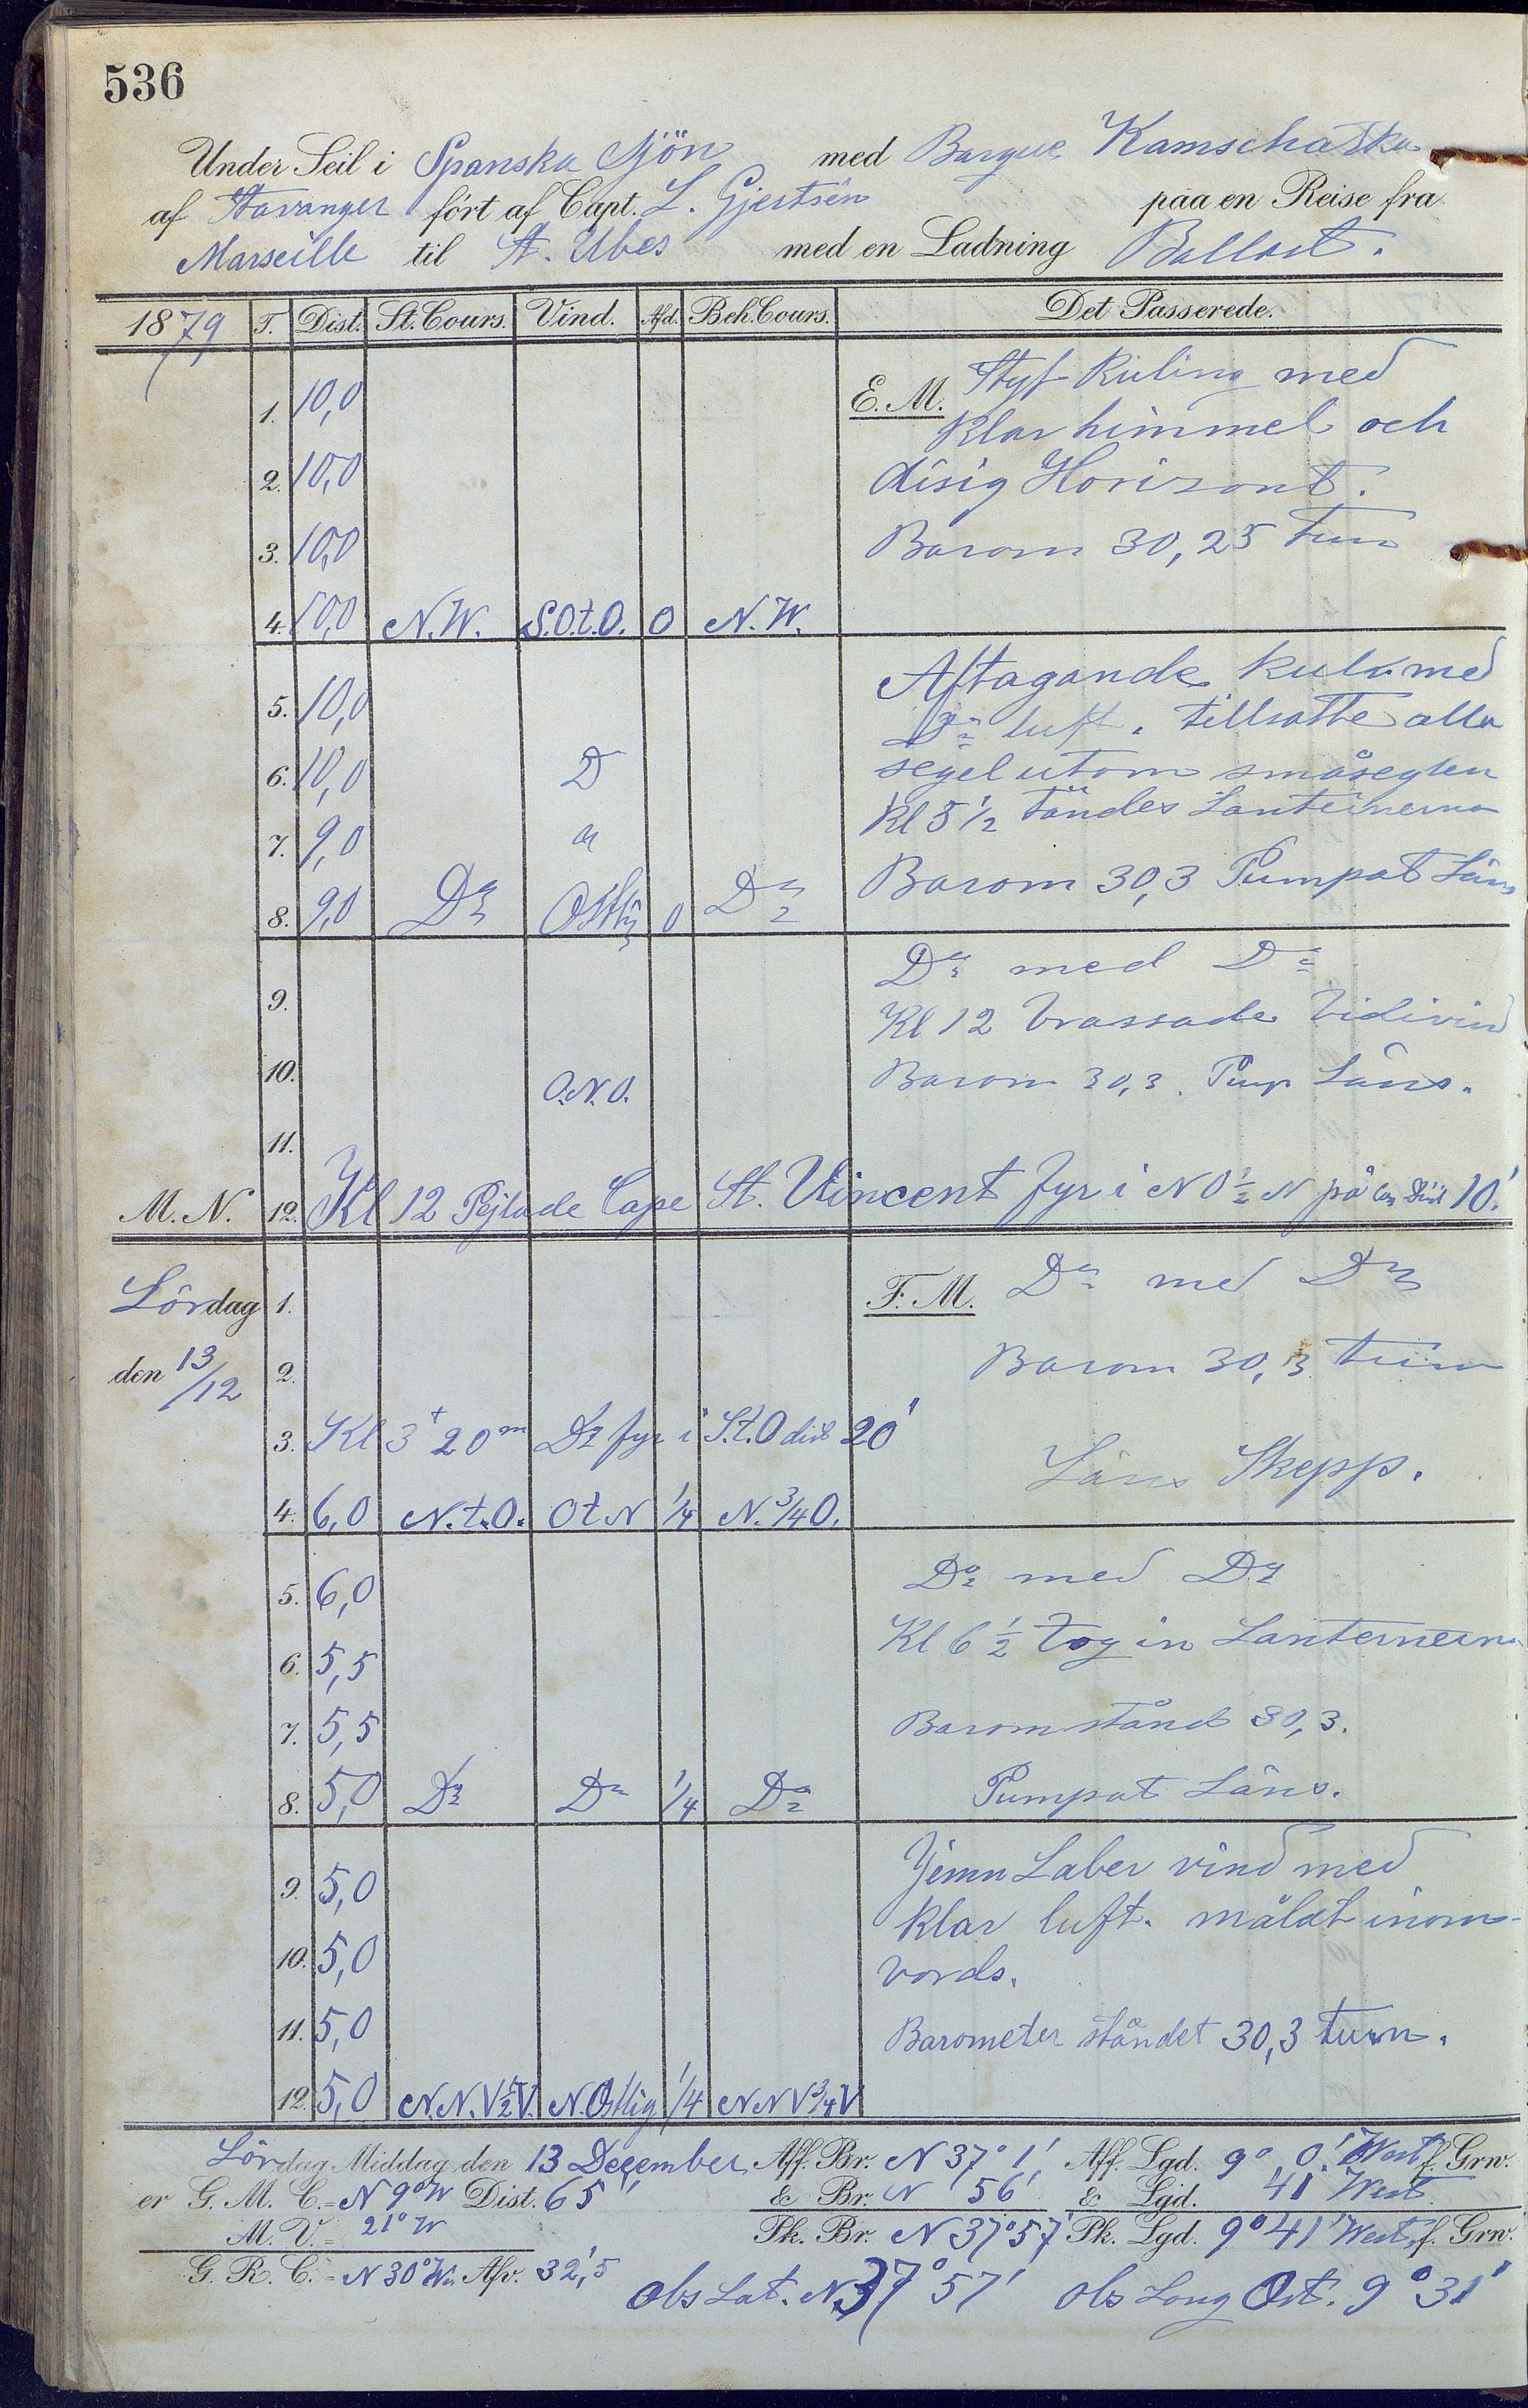 536
Under Seil i Spanska Sjön med Barque Kamschatka
af Stavanger fört af Capt. L. Gjertsen paa en Reise fra
Marseille til St. Ubes med en Ladning Ballast.
1879 T. Dist. St. Cours. Vind. Afd. Beh. Cours. Det Passerede.
1. 10,0 E. M. Styf Kuling med
Klar himmel och
2. 10,0 disig Horisont.
3. 10,0 Barom 30,25 tum
4. 10,0 N.W. S.O.t.O. 0 N.W.
Aftagande kul med
5. 10,0 Do luft. tillsatte alla
6. 10,0 D segel utom småseglen
Kl 5 1/2 tändes Lanternerna
7. 9,0 o
8. 9,0 Do Ostlig 0 Do Barom 30,3 Pumpat Läns
Do med Do
9. Kl 12 brassade Vidivind
10. O.N.O. Barom 30,3. Pump Läns.
11.
M. N. 12. Kl 12 Pejlade Cape St. Vincent fyr i NO 1/2 N på en Dist 10'
Lördag 1. F. M. Do med Do
den 13/12 2. Barom 30,3 tum
3. Kl 3t 20m Do fyr i S.t.O dist 20'
Läns Skepp.
4. 6,0 N.t.O. O t N 1/4 N. 3/4 O.
5. 6,0 Do med Do
6. 5,5 Kl 6 1/2 tog in Lanternerna
7. 5,5 Baromstånd 30,3.
8. 5,0 Do Do 1/4 Do Pumpat Läns.
Jemn Laber vind med
9. 5,0 Klar luft. målat inom-
10. 5,0 bords.
11. 5,0 Barometer ståndet 30,3 tum.
12. 5,0 N.N.V 1/2 V. N.Ostlig 1/4 N N V 3/4 V
Lördag Middag den 13 December Aff. Br. N 37° 1' Aff. Lgd. 9° 0' West f. Grw.
er G. M. C. = N 9° W Dist. 65' & Br. N 56' & Lgd. 41' West
M. V. = 21° W Pk. Br. N 37° 57' Pk. Lgd. 9° 41' West f. Grw.
G. R. C. = N 30° W Afv. 32',5
Obs Lat. N 37° 57' Obs Long Ost. 9° 31'